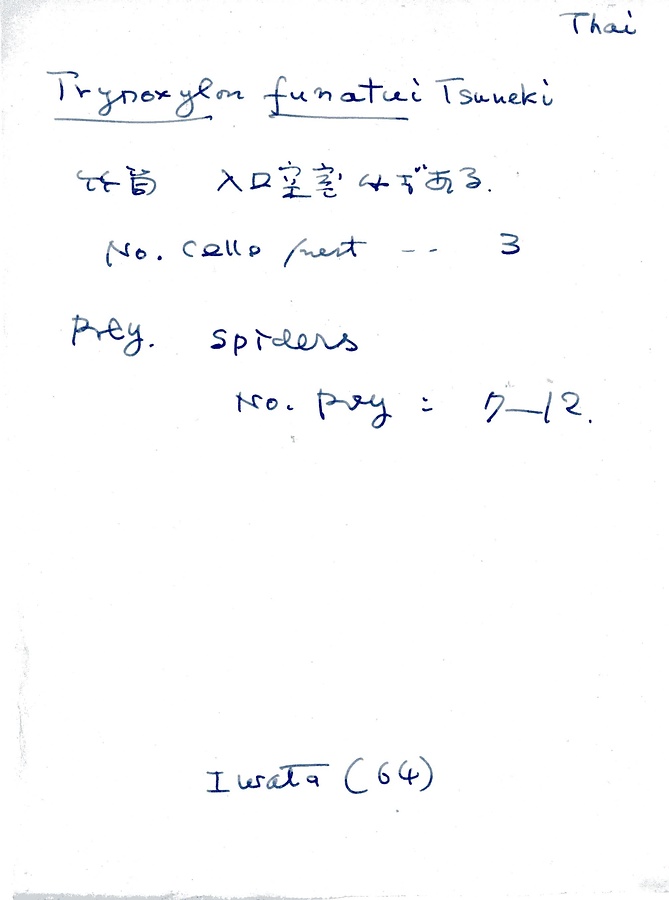 Thai
Trypoxylon funatui Tsuneki
竹筒 入口空室は必ずある.
No. cells/nest -- 3
Prey. Spiders
No. prey : 7—12.
Iwata (64)